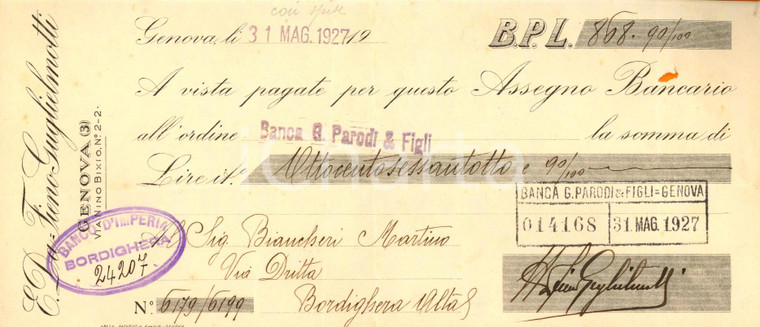 con spese
Genova, li 31 MAG. 1927 19 B.P.L. 868. 90/100
A vista pagate per questo Assegno Bancario
all'ordine Banca G. Parodi & Figli la somma di
Lire it. Ottocentosessantotto e 90/100
BANCA G. PARODI & FIGLI = GENOVA
014168 31 MAG. 1927
Al Sig. Biancheri Martino
Via Dritta
Nº 6179/6199 Bordighera Alta
E. Duº Fieno Guglielmotti
GENOVA (3)
VIA NINO BIXIO, Nº 2-2
BANCO D'IMPERIA
BORDIGHERA
24207